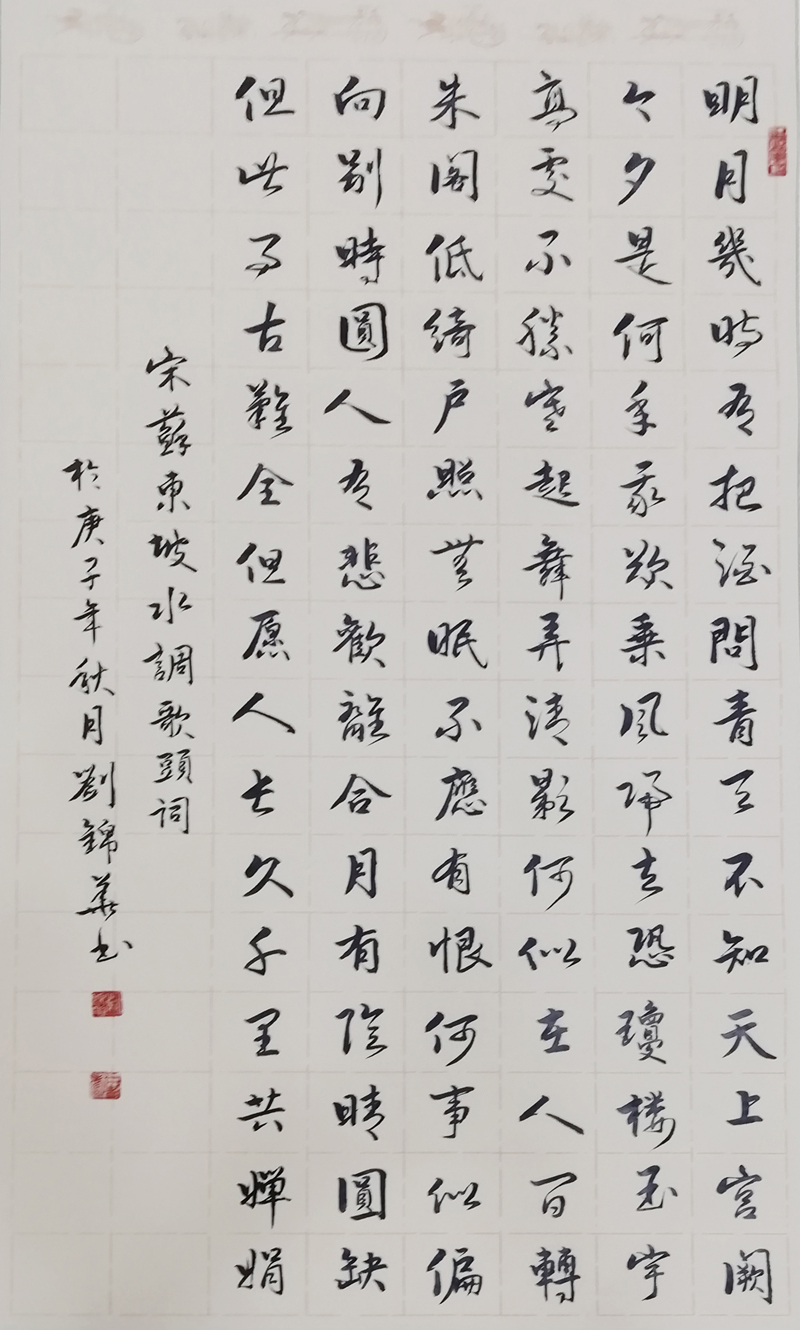 明月幾時有把酒問青天不知天上宮闕
今夕是何年我欲乘風歸去恐瓊樓玉宇
高處不勝寒起舞弄清影何似在人間轉
朱閣低綺户照無眠不應有恨何事似偏
向別時圓人有悲歡離合月有陰晴圓缺
但此事古難全但愿人長久千里共嬋娟
宋蘇東坡水調歌頭詞
於庚子年秋月劉錦華書